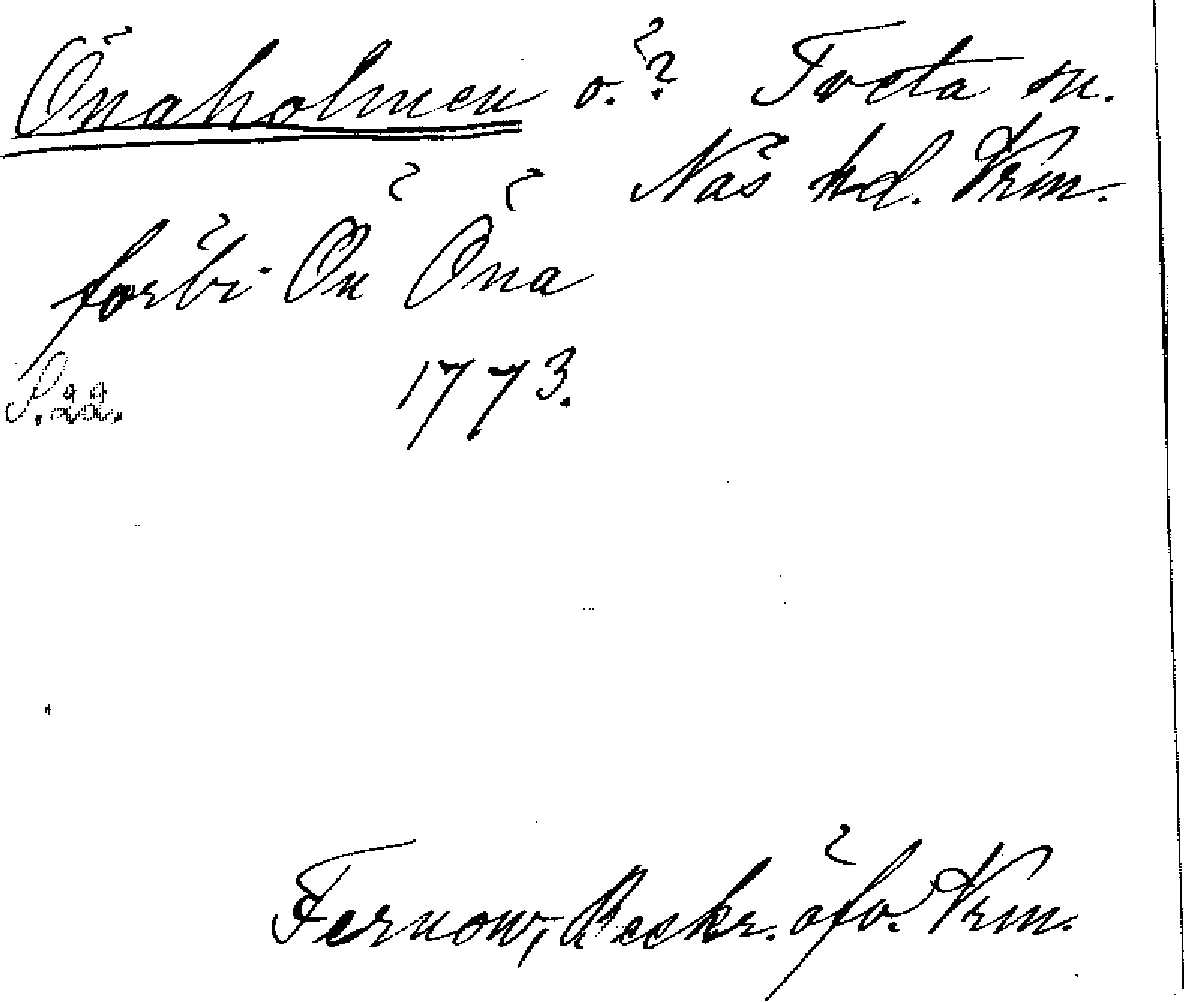 Önaholmen ö.? Tveta sn.
Näs hd. Vrm.
förbi Ön Öna
S. åå. 1773.
Fernow, Beskr. öfv. Vrm.